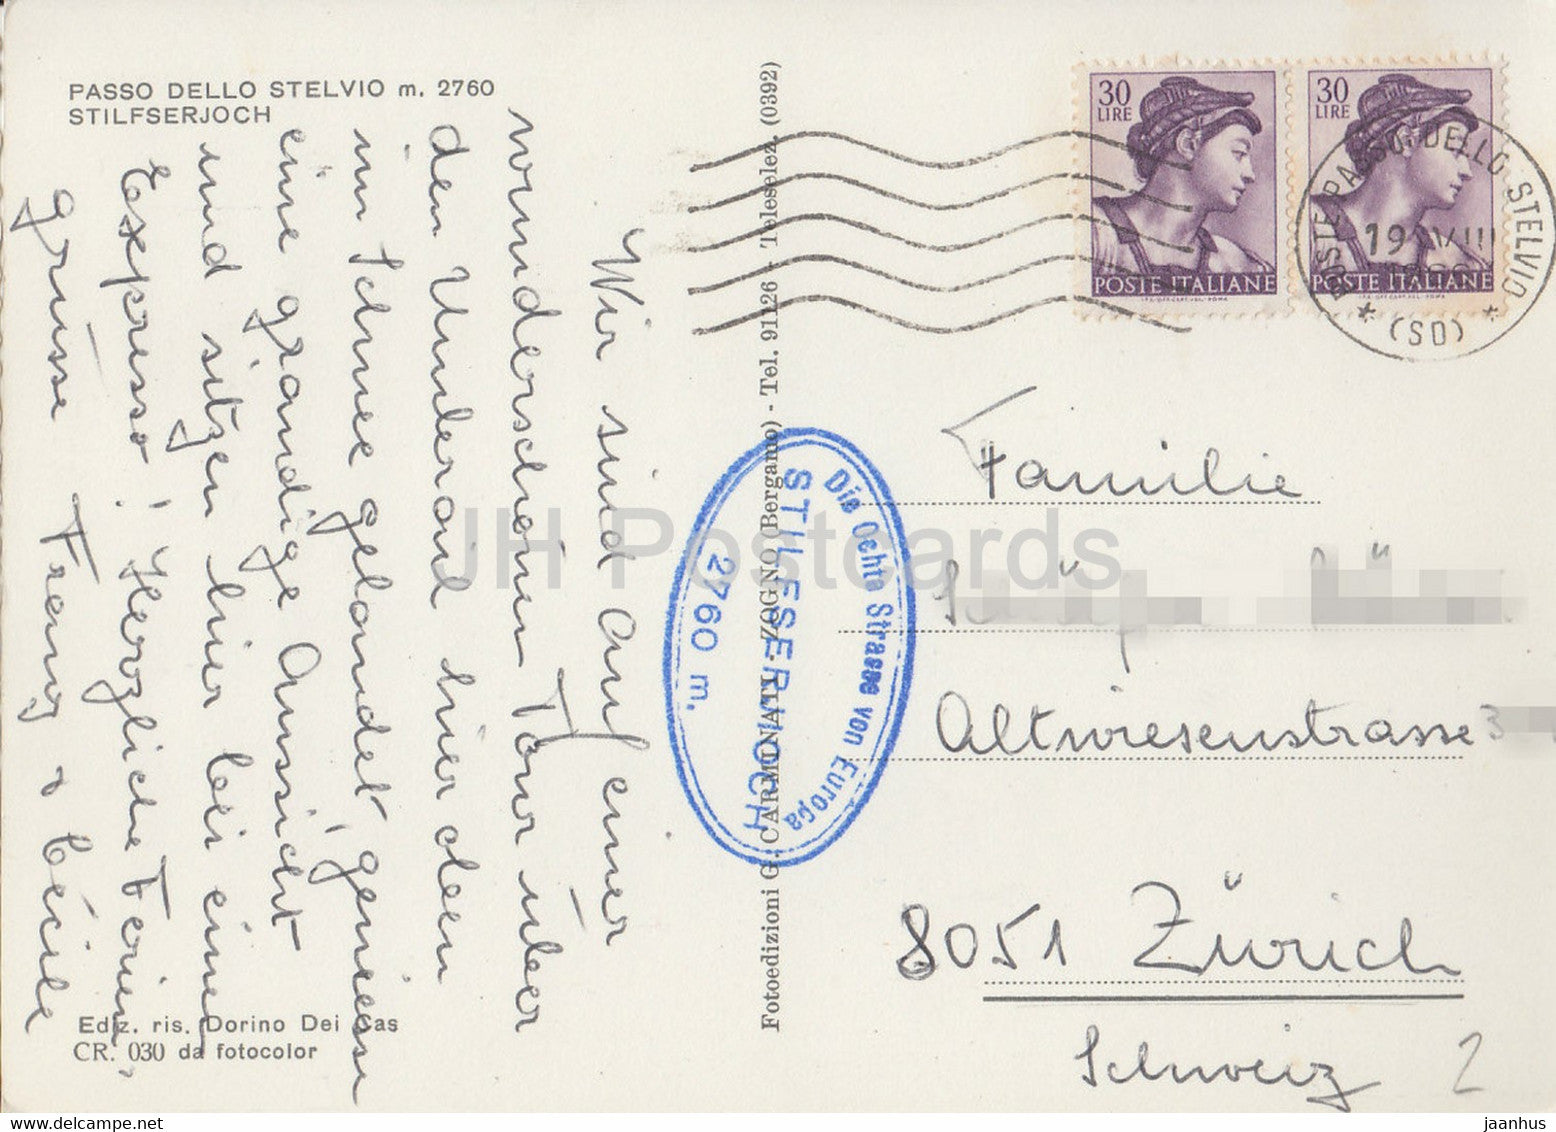 PASSO DELLO STELVIO m. 2760
STILFSERJOCH
Wir sind auf einer
wunderschönen Tour über
den Umbrail hier oben
im Schnee gelandet, geniesse
eine grandige Aussicht
und sitzen hier bei einem
Espresso! Herzliche Ferien-
grüsse Franz & Cécile
Ediz. ris. Dorino Dei Cas
CR. 030 da fotocolor
Fotoedizioni G. CARMINATI - ZOGNO (Bergamo) - Tel. 91126 - Teleselez. (0392)
Die Öchte Strasse von Europa
STILFSERJOCH
2760 m.
30
LIRE
POSTE ITALIANE
30
LIRE
POSTE ITALIANE
POSTE PASSO DELLO STELVIO
19 VIII
* (SO) *
Familie
Altwiesenstrasse 3
8051 Zürich
Schweiz
2
JH Postcards
jaanhus